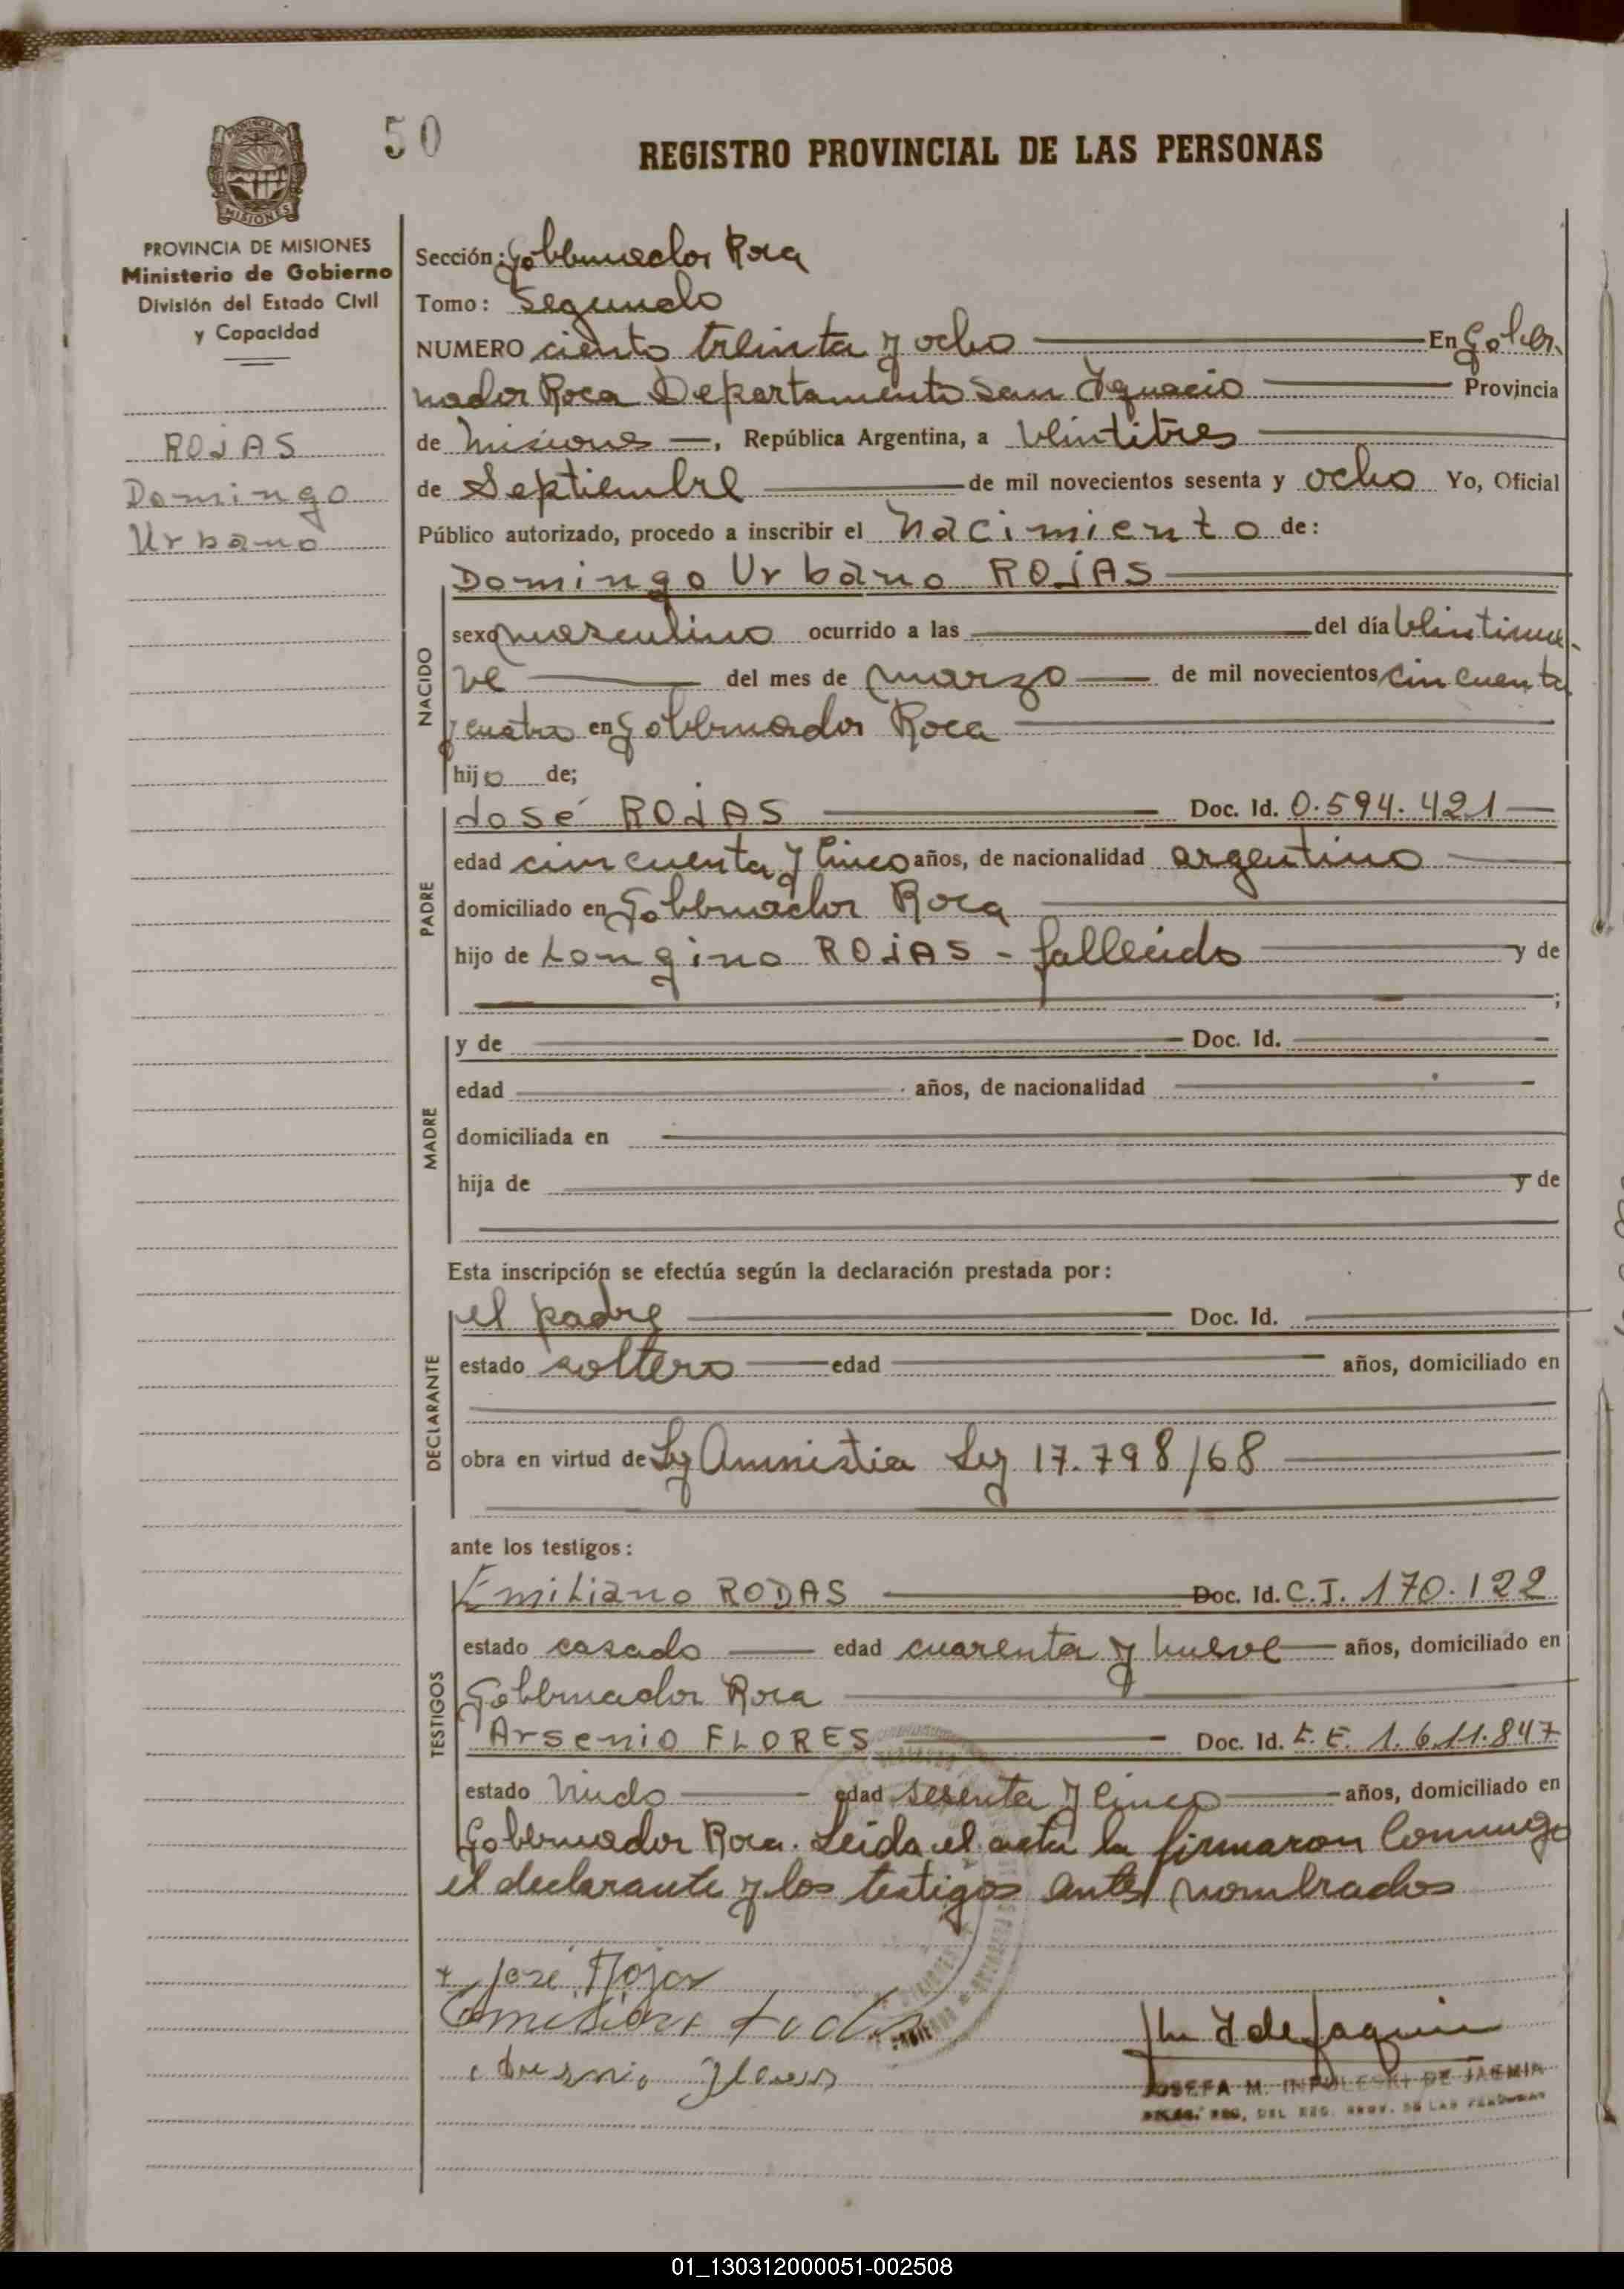 50
REGISTRO PROVINCIAL DE LAS PERSONAS
PROVINCIA DE
MISIONES
PROVINCIA DE MISIONES
Ministerio de Gobierno
División del Estado Civil
y Capacidad
ROJAS
Domingo
Urbano
Sección: Gobernador Roca
Tomo: Segundo
NUMERO ciento treinta y ocho En Gober-
nador Roca Departamento San Ignacio Provincia
de Misiones, República Argentina, a veintitres
de Septiembre de mil novecientos sesenta y ocho Yo, Oficial
Público autorizado, procedo a inscribir el nacimiento de:
Domingo Urbano ROJAS
NACIDO
sexo masculino ocurrido a las del día veintinue-
ve del mes de marzo de mil novecientos cincuenta
y cuatro en Gobernador Roca
hijo de;
PADRE
José ROJAS Doc. Id. 0.594.421
edad cincuenta y cinco años, de nacionalidad argentino
domiciliado en Gobernador Roca
hijo de Longino ROJAS - fallecido y de
;
MADRE
y de Doc. Id.
edad años, de nacionalidad
domiciliada en
hija de y de
Esta inscripción se efectúa según la declaración prestada por:
DECLARANTE
el padre Doc. Id.
estado soltero edad años, domiciliado en
obra en virtud de Ley Amnistia Ley 17.798/68
ante los testigos:
TESTIGOS
Emiliano RODAS Doc. Id. C.I. 170.122
estado casado edad cuarenta y nueve años, domiciliado en
Gobernador Roca
Arsenio FLORES Doc. Id. L.E. 1.611.847
estado viudo edad sesenta y cinco años, domiciliado en
Gobernador Roca. Leida el acta la firmaron conmigo
el declarante y los testigos antes nombrados
José Rojas
JOSEFA M. DE
DEL REG. PROV. DE LAS PERSONAS
01_130312000051-002508